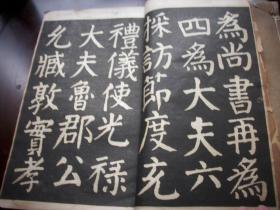 為尚書再為
四為大夫六
採訪節度充
禮儀使光祿
大夫魯郡公
允臧敦實孝